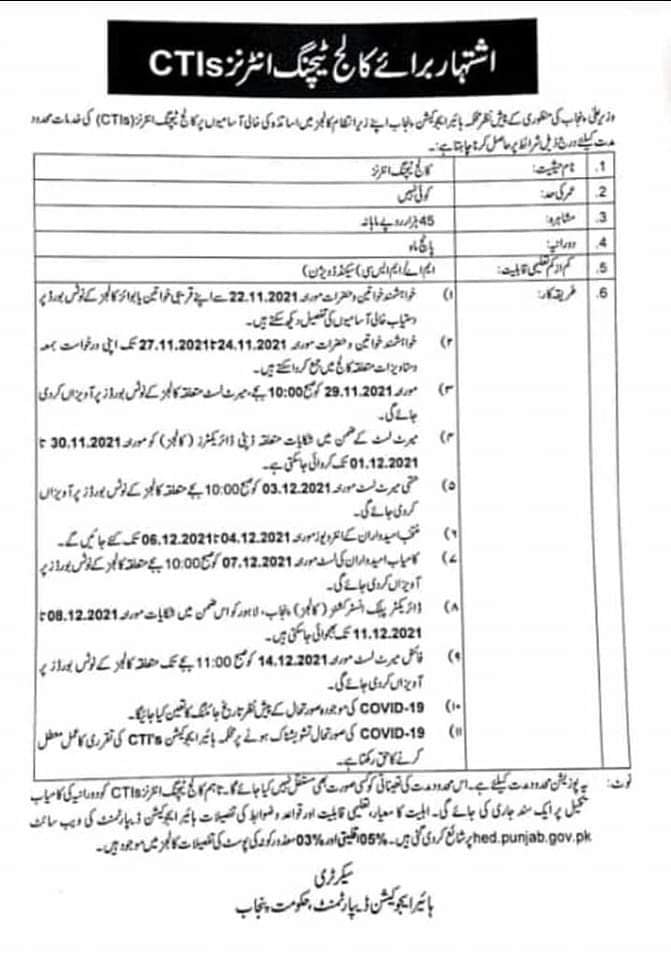 اشتہار برائے کالج ٹیچنگ انٹرنز CTIs
وزیراعلیٰ پنجاب کی منظوری کے پیش نظر محکمہ ہائیر ایجوکیشن پنجاب اپنے زیر انتظام کالجز میں اساتذہ کی خالی آسامیوں پر کالج ٹیچنگ انٹرنز (CTIs) کی خدمات محدود
مدت کیلئے درج ذیل شرائط پر حاصل کرنا چاہتا ہے:۔
1. نام حیثیت: کالج ٹیچنگ انٹرنز
2. عمر کی حد: کوئی نہیں
3. مشاہرہ: 45 ہزار روپے ماہانہ
4. دورانیہ: پانچ ماہ
5. کم از کم تعلیمی قابلیت: ایم اے/ایم ایس سی (سیکنڈ ڈویژن)
6. طریقہ کار: ۱) خواہشمند خواتین و حضرات مورخہ 22.11.2021 سے اپنے قریبی خواتین یا بوائز کالجز کے نوٹس بورڈ پر
دستیاب خالی آسامیوں کی تفصیل دیکھ سکتے ہیں۔
۲) خواہشمند خواتین و حضرات مورخہ 24.11.2021 تا 27.11.2021 تک اپنی درخواست بمعہ
دستاویزات متعلقہ کالج میں جمع کروا سکتے ہیں۔
۳) مورخہ 29.11.2021 کو صبح 10:00 بجے، میرٹ لسٹ متعلقہ کالجز کے نوٹس بورڈز پر آویزاں کردی
جائے گی۔
۴) میرٹ لسٹ کے ضمن میں شکایات متعلقہ ڈپٹی ڈائریکٹرز (کالجز) کو مورخہ 30.11.2021 تا
01.12.2021 تک کروائی جاسکتی ہے۔
۵) حتمی میرٹ لسٹ مورخہ 03.12.2021 کو صبح 10:00 بجے متعلقہ کالجز کے نوٹس بورڈز پر آویزاں
کردی جائے گی۔
۶) منتخب امیدواران کے انٹرویوز مورخہ 04.12.2021 تا 06.12.2021 تک کئے جائیں گے۔
۷) کامیاب امیدواران کی لسٹ مورخہ 07.12.2021 کو صبح 10:00 بجے متعلقہ کالجز کے نوٹس بورڈز پر
آویزاں کردی جائے گی۔
۸) ڈائریکٹر پبلک انسٹرکشنز (کالجز) پنجاب، لاہور کو اس ضمن میں شکایات مورخہ 08.12.2021 تا
11.12.2021 تک بھجوائی جاسکتی ہیں۔
۹) فائنل میرٹ لسٹ مورخہ 14.12.2021 کو صبح 11:00 بجے تک متعلقہ کالجز کے نوٹس بورڈز پر
آویزاں کردی جائے گی۔
۱۰) COVID-19 کی موجودہ صورتحال کے پیش نظر تاریخ جائننگ کا تعین کیا جائیگا۔
۱۱) COVID-19 کی صورتحال تشویشناک ہونے پر محکمہ ہائیر ایجوکیشن CTI's کی تقرری کا عمل معطل
کرنے کا حق رکھتا ہے۔
نوٹ: یہ پوزیشن محدود مدت کیلئے ہے۔ اس محدود مدت کی تعیناتی کو کسی صورت بھی مستقل نہیں کیا جائے گا۔ تاہم کالج ٹیچنگ انٹرنز CTIs کو دورانیہ کی کامیاب
تکمیل پر ایک سند جاری کی جائے گی۔ اہلیت کا معیار، تعلیمی قابلیت اور قواعد و ضوابط کی تفصیلات ہائیر ایجوکیشن ڈیپارٹمنٹ کی ویب سائٹ
hed.punjab.gov.pk پر شائع کردی گئی ہیں۔ 05% اقلیتی اور 03% معذور کوٹہ کی پوسٹ کی تفصیلات کالجز میں موجود ہیں۔
سیکرٹری
ہائیر ایجوکیشن ڈیپارٹمنٹ، حکومت پنجاب